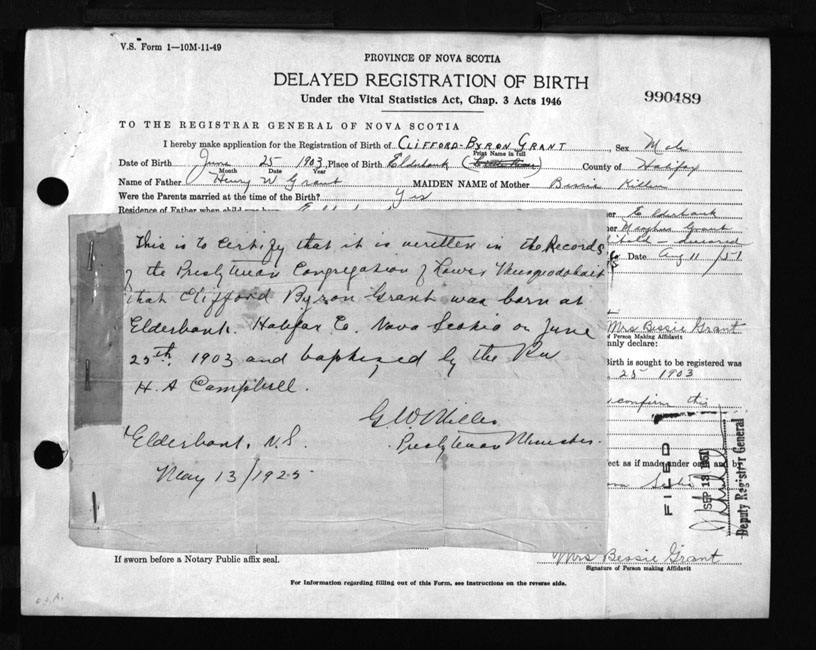 V.S. Form 1—10M-11-49
PROVINCE OF NOVA SCOTIA
DELAYED REGISTRATION OF BIRTH
Under the Vital Statistics Act, Chap. 3 Acts 1946
990489
TO THE REGISTRAR GENERAL OF NOVA SCOTIA
I hereby make application for the Registration of Birth of CLIFFORD-BYRON GRANT Sex Male
Print Name in full
Date of Birth June 25 1903, Place of Birth Elderbank County of Halifax
Month Date Year
Name of Father Henry W Grant MAIDEN NAME of Mother Bessie Killen
Were the Parents married at the time of the Birth? Yes
Residence of Father when child was born Elderbank
This is to Certify that it is written in the Records
of the Presbyterian Congregation of Lower Musquodoboit
that Clifford Byron Grant was born at
Elderbank. Halifax Co. Nova Scotia on June
25th. 1903 and baptized by the Rev
H. A Campbell.
G W Miller
Presbyterian Minister.
Elderbank, N.S.
May 13/1925
her Elderbank
her Grant
deceased
Date Aug 11/51
Mrs Bessie Grant
of Person Making Affidavit
nly declare:
Birth is sought to be registered was
25 1903
confirm this
ect as if made under oath and by
FILED
SEP 13 1951
Deputy Registrar General
If sworn before a Notary Public affix seal.
Mrs Bessie Grant
Signature of Person making Affidavit
For Information regarding filling out of this Form, see instructions on the reverse side.